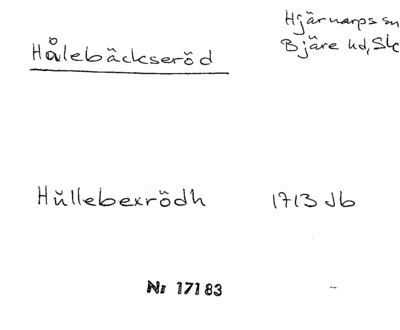 Hålebäckseröd
Hjärnarps sn
Bjäre hd, Sk
Hŭllebexrödh 1713 Jb
Nr 17183